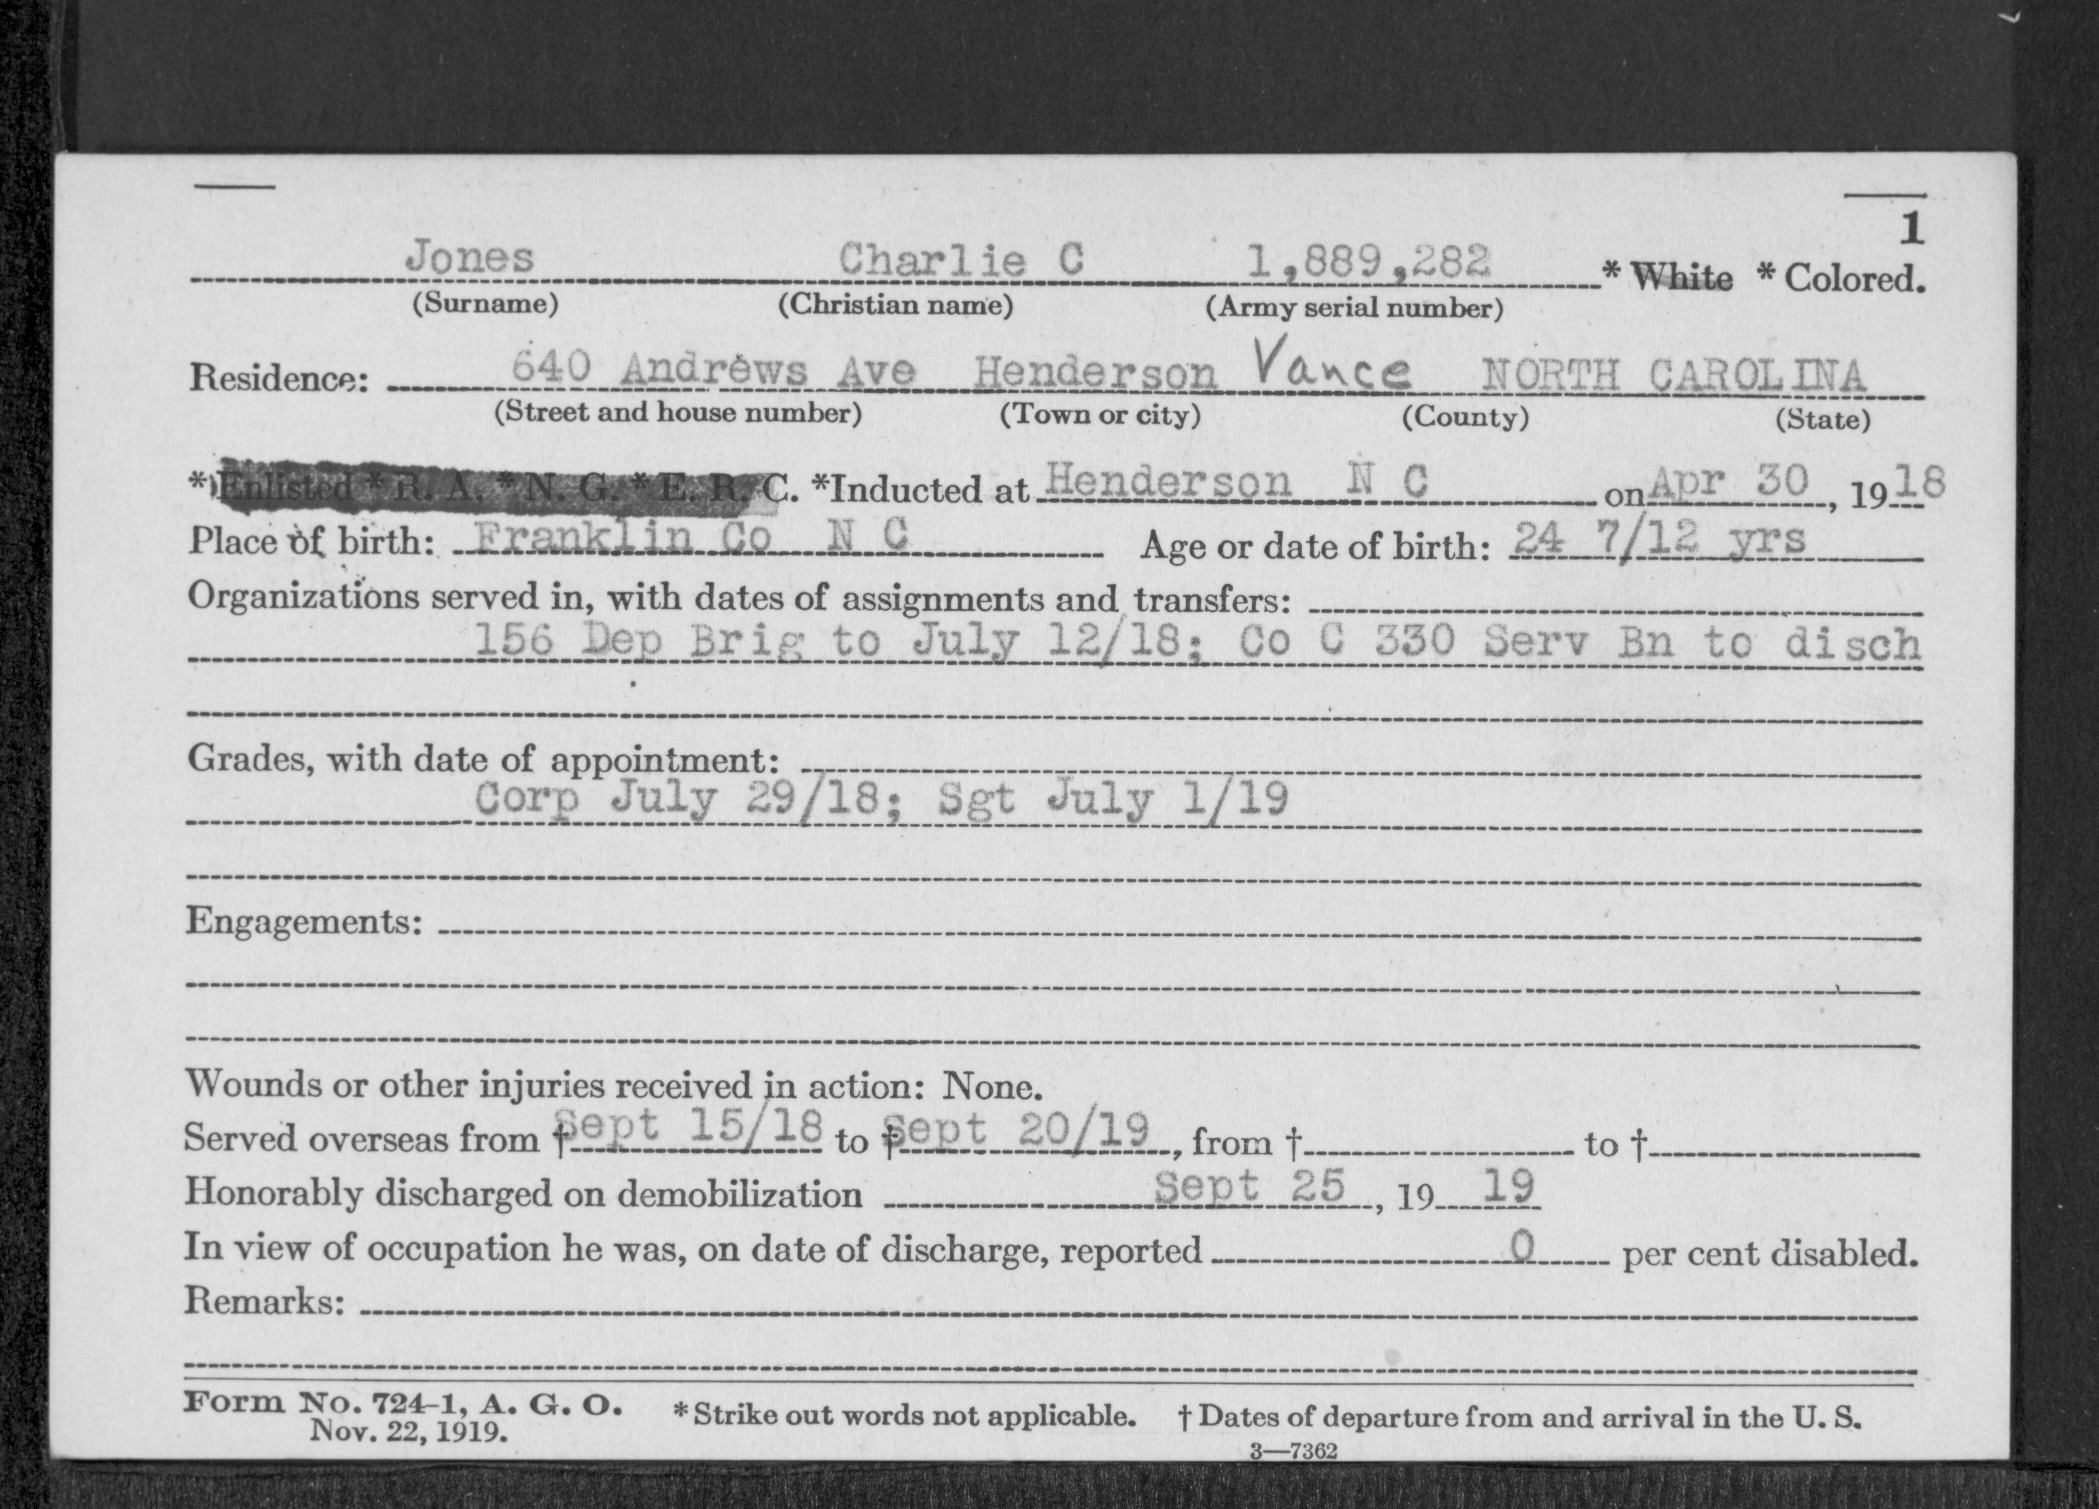 1
Jones Charlie C 1,889,282 * White * Colored.
(Surname) (Christian name) (Army serial number)
Residence: 640 Andrews Ave Henderson Vance NORTH CAROLINA
(Street and house number) (Town or city) (County) (State)
* Enlisted * R. A. * N. G. * E. R. C. *Inducted at Henderson N C on Apr 30, 1918
Place of birth: Franklin Co N C Age or date of birth: 24 7/12 yrs
Organizations served in, with dates of assignments and transfers:
156 Dep Brig to July 12/18; Co C 330 Serv Bn to disch
Grades, with date of appointment:
Corp July 29/18; Sgt July 1/19
Engagements:
Wounds or other injuries received in action: None.
Served overseas from † Sept 15/18 to † Sept 20/19, from † to †
Honorably discharged on demobilization Sept 25, 19 19
In view of occupation he was, on date of discharge, reported 0 per cent disabled.
Remarks:
Form No. 724-1, A. G. O. * Strike out words not applicable. † Dates of departure from and arrival in the U. S.
Nov. 22, 1919.
3—7362